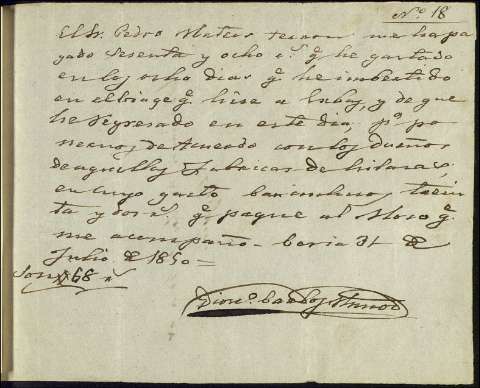 N.º 18
El Sr. Pedro Mateos me ha pa
gado Sesenta y ocho r.s q.e he gastado
en los ocho dias q.e he imbertido
en el biage q.e hise a y de que
he Regresado en este dia, p.a po
nernos de Acuerdo con los dueños
de aquellas Fabricas de hilazas,
en cuyo gasto ban inclusos trein
ta y dos r.s q.e pague al Moso q.e
me acompañó - Coria 31 de
Julio de 1850 =
Son 68 r.s
Dion.o